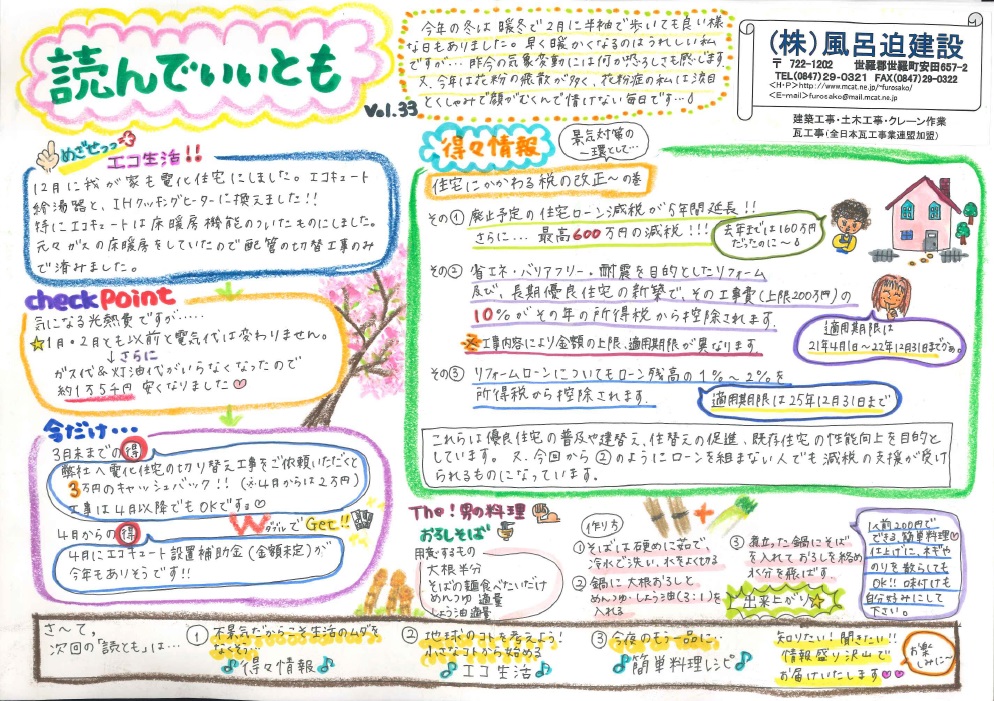 読んでいいとも
Vol.33
今年の冬は暖冬で2月に半袖で歩いても良い様
な日もありました。早く暖かくなるのはうれしい私
ですが…昨今の気象変動には何か恐ろしさも感じます。
又、今年は花粉の飛散が多く、花粉症の私は涙目
とくしゃみで顔がむくんで情けない毎日です…
(株)風呂迫建設
〒 722-1202 世羅郡世羅町安田657-2
TEL(0847)29-0321 FAX(0847)29-0322
<H・P>http://www.mcat.ne.jp/~furosako/
<E-mail>furosako@mail.mcat.ne.jp
建築工事・土木工事・クレーン作業
瓦工事(全日本瓦工事業連盟加盟)
めざせっっ
エコ生活!!
12月に我が家も電化住宅にしました。エコキュート
給湯器と、IHクッキングヒーターに換えました!!
特にエコキュートは床暖房機能のついたものにしました。
元々ガスの床暖房をしていたので配管の切替工事のみ
で済みました。
check point
気になる光熱費ですが……
☆1月・2月とも以前と電気代は変わりません。
↓さらに
ガス代&灯油代がいらなくなったので
約1万5千円 安くなりました♡
今だけ・・・
3月末までの得
弊社へ電化住宅の切り替え工事をご依頼いただくと
3万円のキャッシュバック!! (※4月からは2万円)
工事は4月以降でもOKです。♡
WダブルでGet!!
4月からの得
4月にエコキュート設置補助金(金額未定)が
今年もありそうです!!
得々情報
景気対策の
一環として…
住宅にかかわる税の改正〜の巻
その① 廃止予定の住宅ローン減税が5年間延長!!
さらに… 最高600万円の減税!!!
去年までは160万円
だったのに〜
その② 省エネ・バリアフリー・耐震を目的としたリフォーム
及び、長期優良住宅の新築で、その工事費(上限200万円)の
10%がその年の所得税から控除されます。
※工事内容により金額の上限、適用期限が異なります。
適用期限は
21年4月1日〜22年12月31日までかぁ。
その③ リフォームローンについてもローン残高の1%〜2%を
所得税から控除されます。
適用期限は25年12月31日まで
これらは優良住宅の普及や建替え、住替えの促進、既存住宅の性能向上を目的と
しています。又、今回から②のようにローンを組まない人でも減税の支援が受け
られるものになっています。
The!男の料理
おろしそば
用意するもの
大根半分
そばの麺食べたいだけ
めんつゆ 適量
しょう油 適量
作り方
①そばは硬めに茹で、
冷水で洗い、水をよく切る
②鍋に大根おろしと
めんつゆ・しょう油(3:1)を
入れる
③煮立った鍋にそば
を入れておろしを絡め
水分を飛ばす。
出来上がり☆
1人前200円で
できる簡単料理♡
仕上げに、ネギや
のりを散らしても
OK!! 味付けも
自分好みにして
下さい。
さ〜て、
次回の「読とも」は…
① 不景気だからこそ生活のムダを
なくそう…
♪得々情報♪
② 地球のコトを考えよう!
小さなコトから始める
♪エコ生活♪
③ 今夜のもう一品に…
♪簡単料理レシピ♪
知りたい!聞きたい!!
情報盛り沢山で
お届けいたします♡♡
お楽
しみに〜